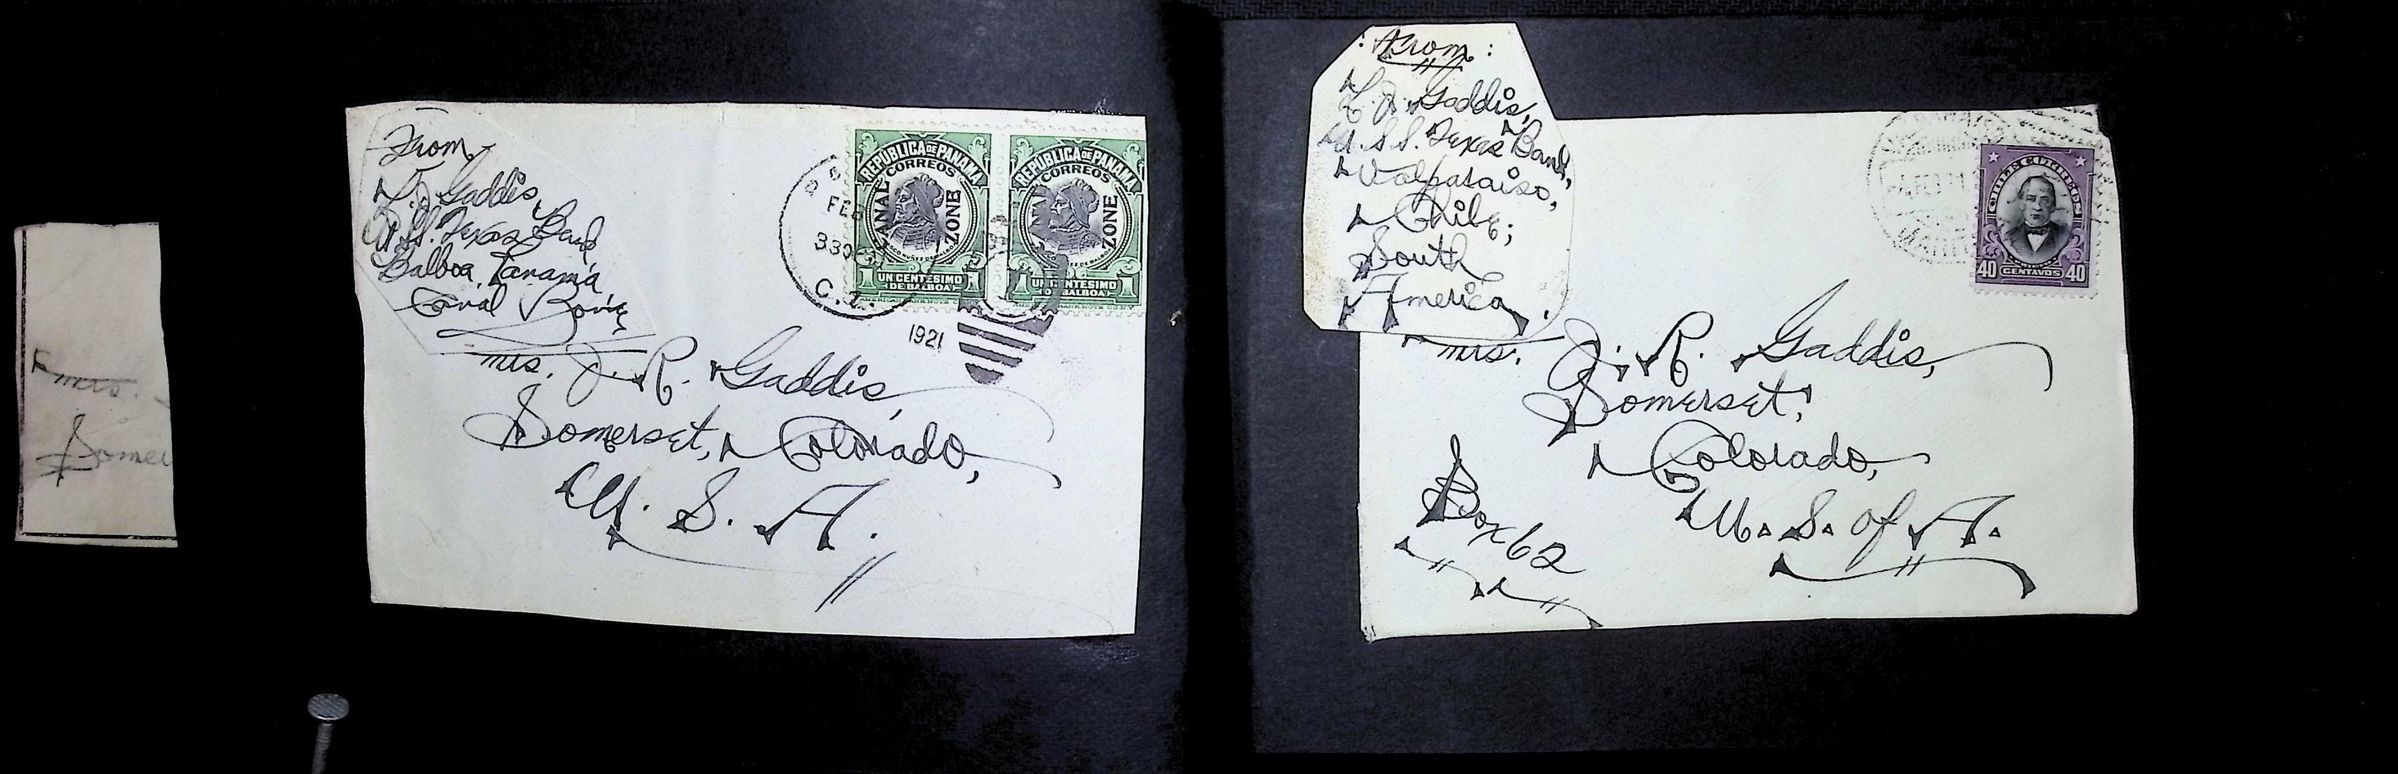 Mrs.
Somer
From
L. J. Gaddis,
U.S.S. Texas Band
Balboa, Panama
Canal Zone
REPUBLICA DE PANAMA
CORREOS
CANAL ZONE
1 UN CENTESIMO 1
DE BALBOA
REPUBLICA DE PANAMA
CORREOS
CANAL ZONE
1 UN CENTESIMO 1
DE BALBOA
FEB
330
C.Z.
1921
Mrs. J. R. Gaddis,
Somerset, Colorado,
U. S. A.
: From :
L. J. Gaddis,
U.S.S. Texas Band,
Valparaiso,
Chile;
South
America.
CHILE CORREOS
40 CENTAVOS 40
FEB 21
Mrs. J. R. Gaddis,
Somerset,
Colorado,
U. S. of A.
Box 62